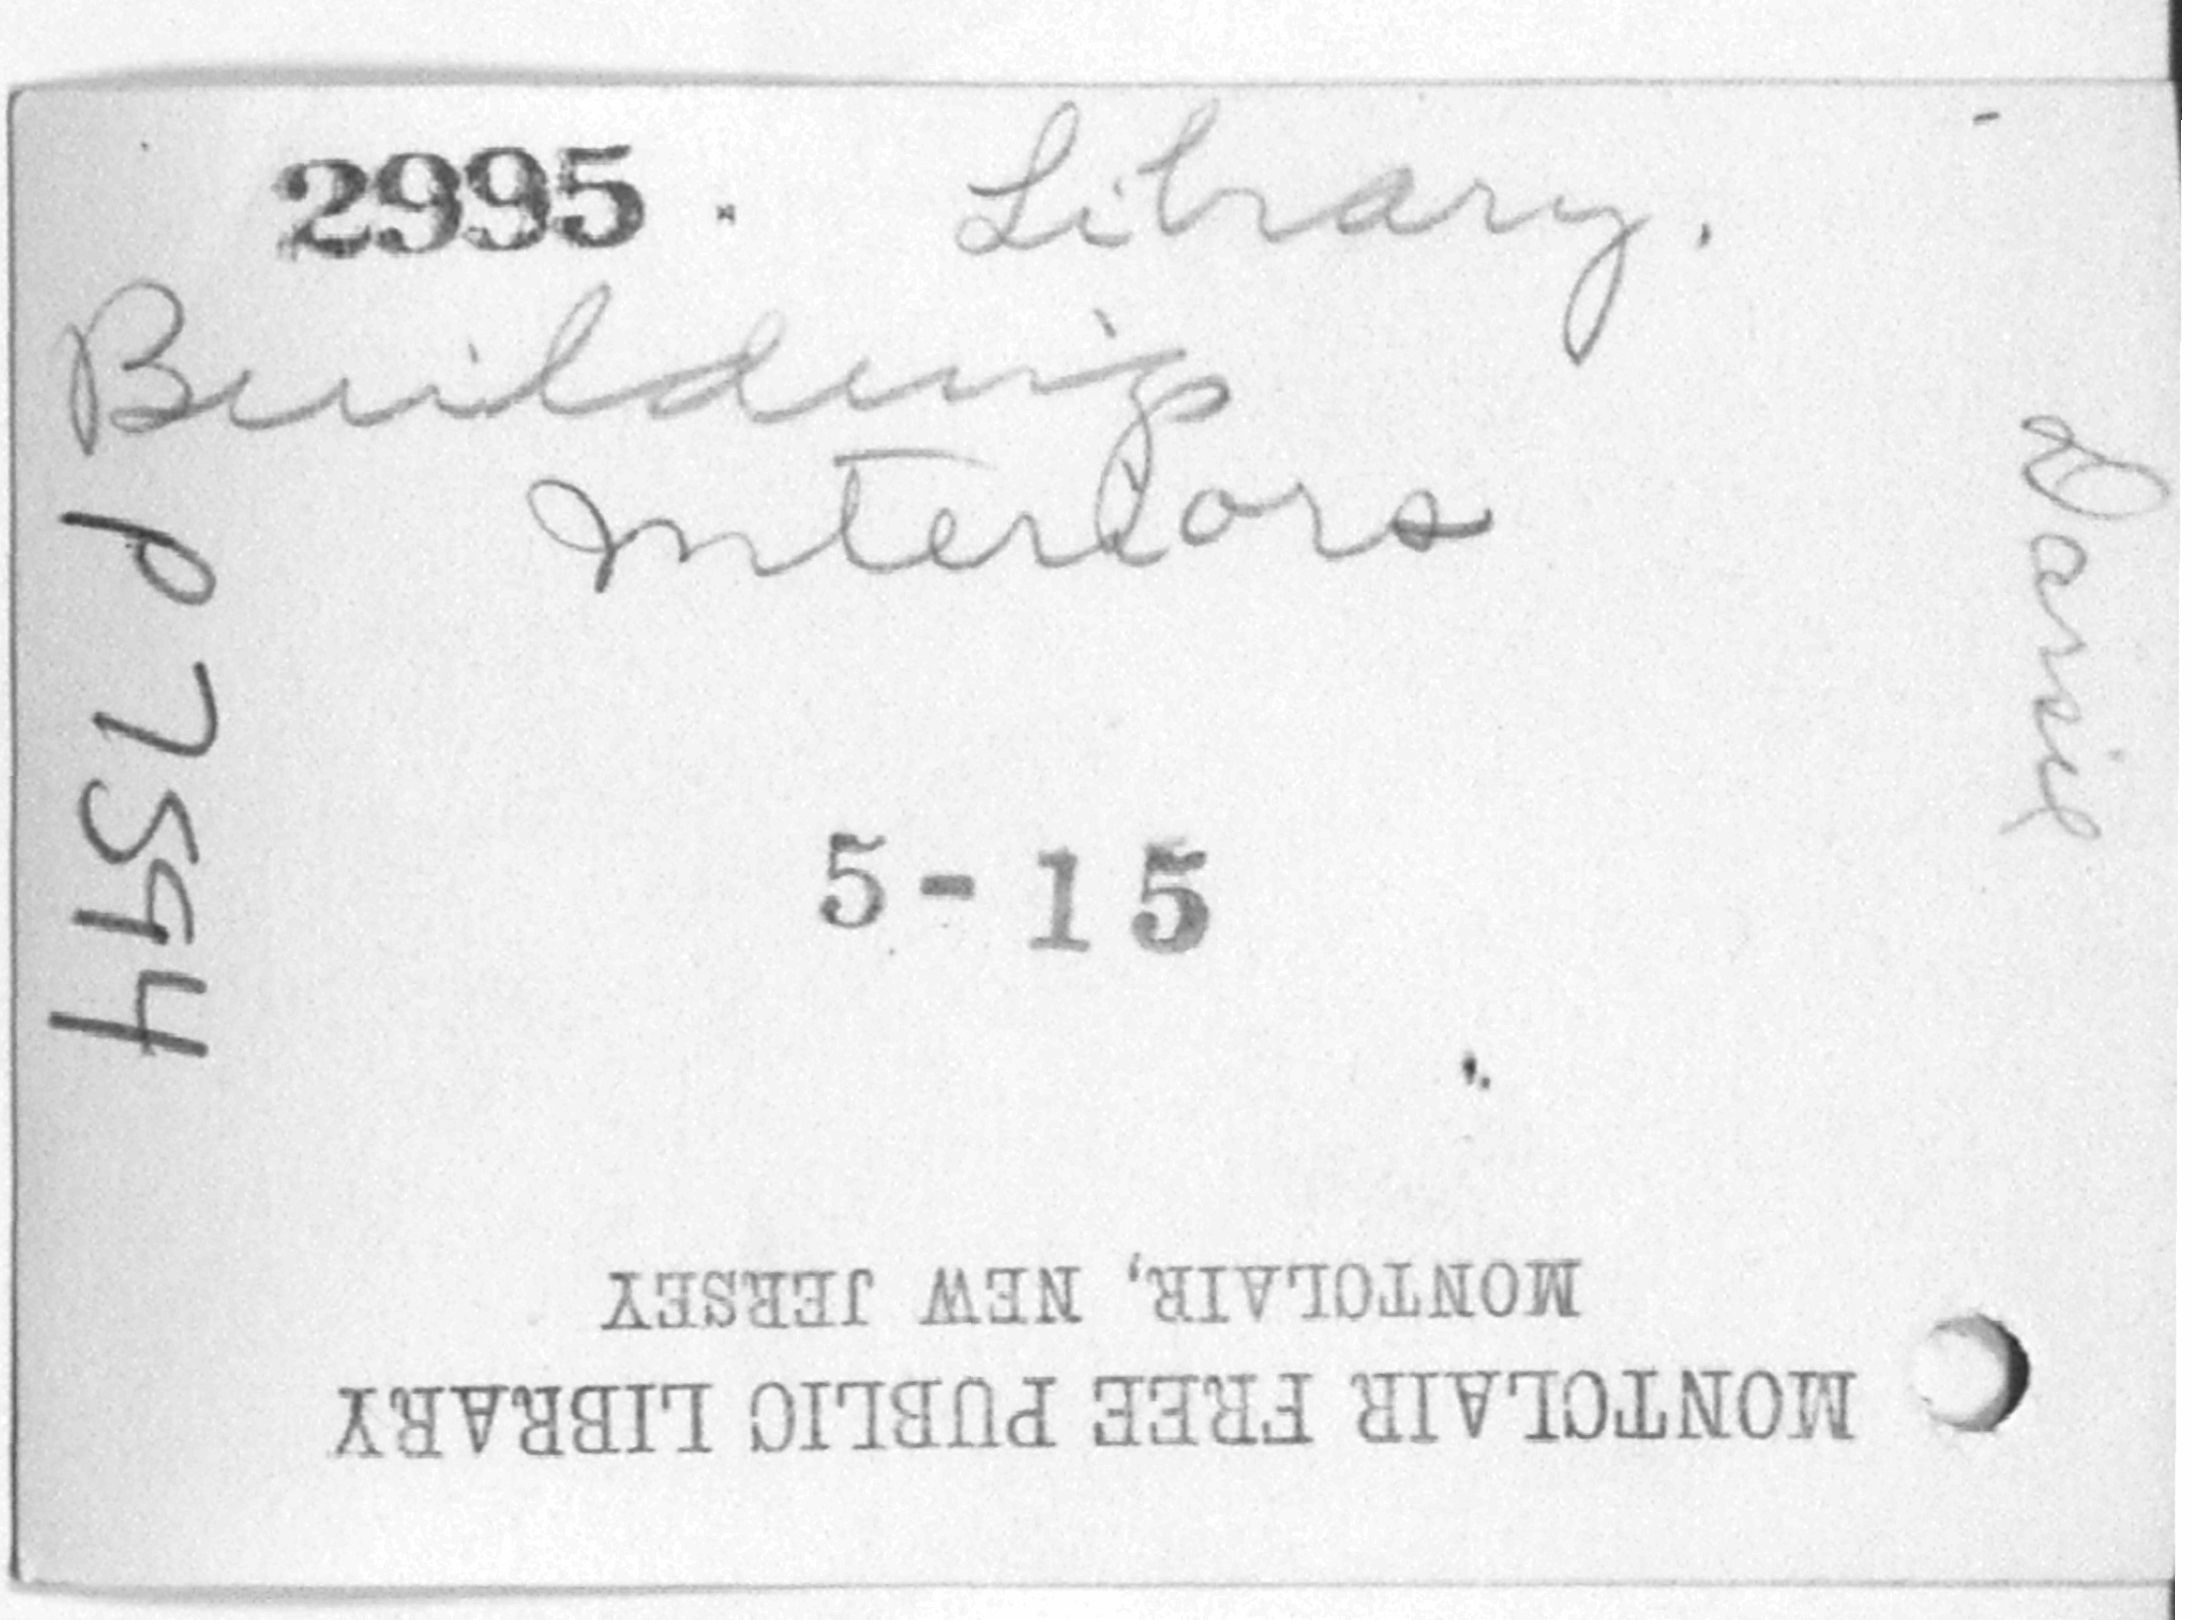 2995. Library.
Buildings
Interiors
P 7594
5-15
MONTCLAIR FREE PUBLIC LIBRARY
MONTCLAIR, NEW JERSEY